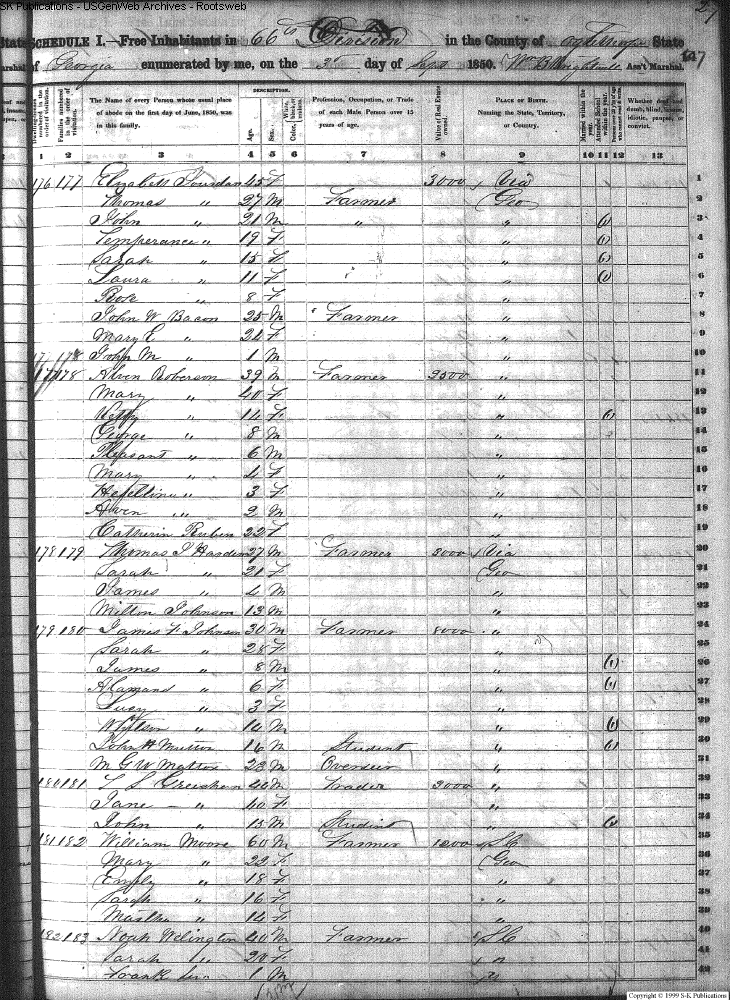 SK Publications - USGenWeb Archives - Rootsweb
27
SCHEDULE I.—Free Inhabitants in 66th Division in the County of Oglethorpe State
of Georgia enumerated by me, on the 3d day of Sept 1850. Ass't Marshal.
147
DESCRIPTION.
Dwelling-houses numbered in the order of visitation.
Families numbered in the order of visitation.
The Name of every Person whose usual place of abode on the first day of June, 1850, was in this family.
Age.
Sex.
White, black, or mulatto.
Color
Profession, Occupation, or Trade of each Male Person over 15 years of age.
Value of Real Estate owned.
PLACE OF BIRTH. Naming the State, Territory, or Country.
Married within the year.
Attended School within the year.
Whether deaf and dumb, blind, insane, idiotic, pauper, or convict.
1 2 3 4 5 6 7 8 9 10 11 12 13
176 177 Elizabeth Jourdan 45 F 3000 Via 1
Thomas " 27 M Farmer Geo 2
John " 21 M " " (1) 3
Temperance " 19 F " (1) 4
Sarah " 15 F " (1) 5
Laura " 11 F " (1) 6
Rose " 8 F " 7
John W Bacon 25 M Farmer " 8
Mary E " 24 F " 9
John M " 1 M " 10
177 178 Alven Roberson 39 M Farmer 2500 " 11
Mary " 40 F " 12
14 F " (1) 13
George " 8 M " 14
Pleasant " 6 M " 15
Mary " 4 F " 16
" 3 F " 17
Alven " 2 M " 18
Catherin Ruben 22 F " 19
178 179 Thomas J Harden 27 M Farmer 3000 Via 20
Sarah " 21 F Geo 21
James " 4 M " 22
Milton Johnson 13 M " 23
179 180 James F Johnson 30 M Farmer 8000 " 24
Sarah " 28 F " 25
James " 8 M " (1) 26
" 6 F " (1) 27
Lucy " 3 F " 28
" 10 M " (1) 29
John H Mutton 16 M Student " (1) 30
M G W Matton 23 M Overseer " 31
180 181 T S Greesham 42 M Trader 3000 " 32
Jane " 40 F " 33
John " 15 M Student " (1) 34
181 182 William Moore 60 M Farmer 1200 SC 35
Mary " 22 F Geo 36
Emily " 18 F " 37
Sarah " 16 F " 38
Martha " 14 F " 39
182 183 Noah Welington 40 M Farmer SC 40
Sarah " 20 F " 41
1 M " 42
Copyright © 1999 S-K Publications